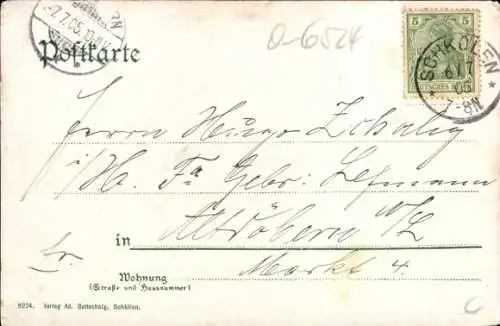 7.7.05.
5 5
DEUTSCHES REICH
SCHKÖLEN
6 7
05
7-8N
O-6524
Postkarte
Herrn Hugo
i/H. Fa Gebr: Lehmann
in Altdöbern N/L
Markt 4.
Wohnung
(Straße und Hausnummer)
6234. Verlag Ad. Gottschalg, Schkölen.